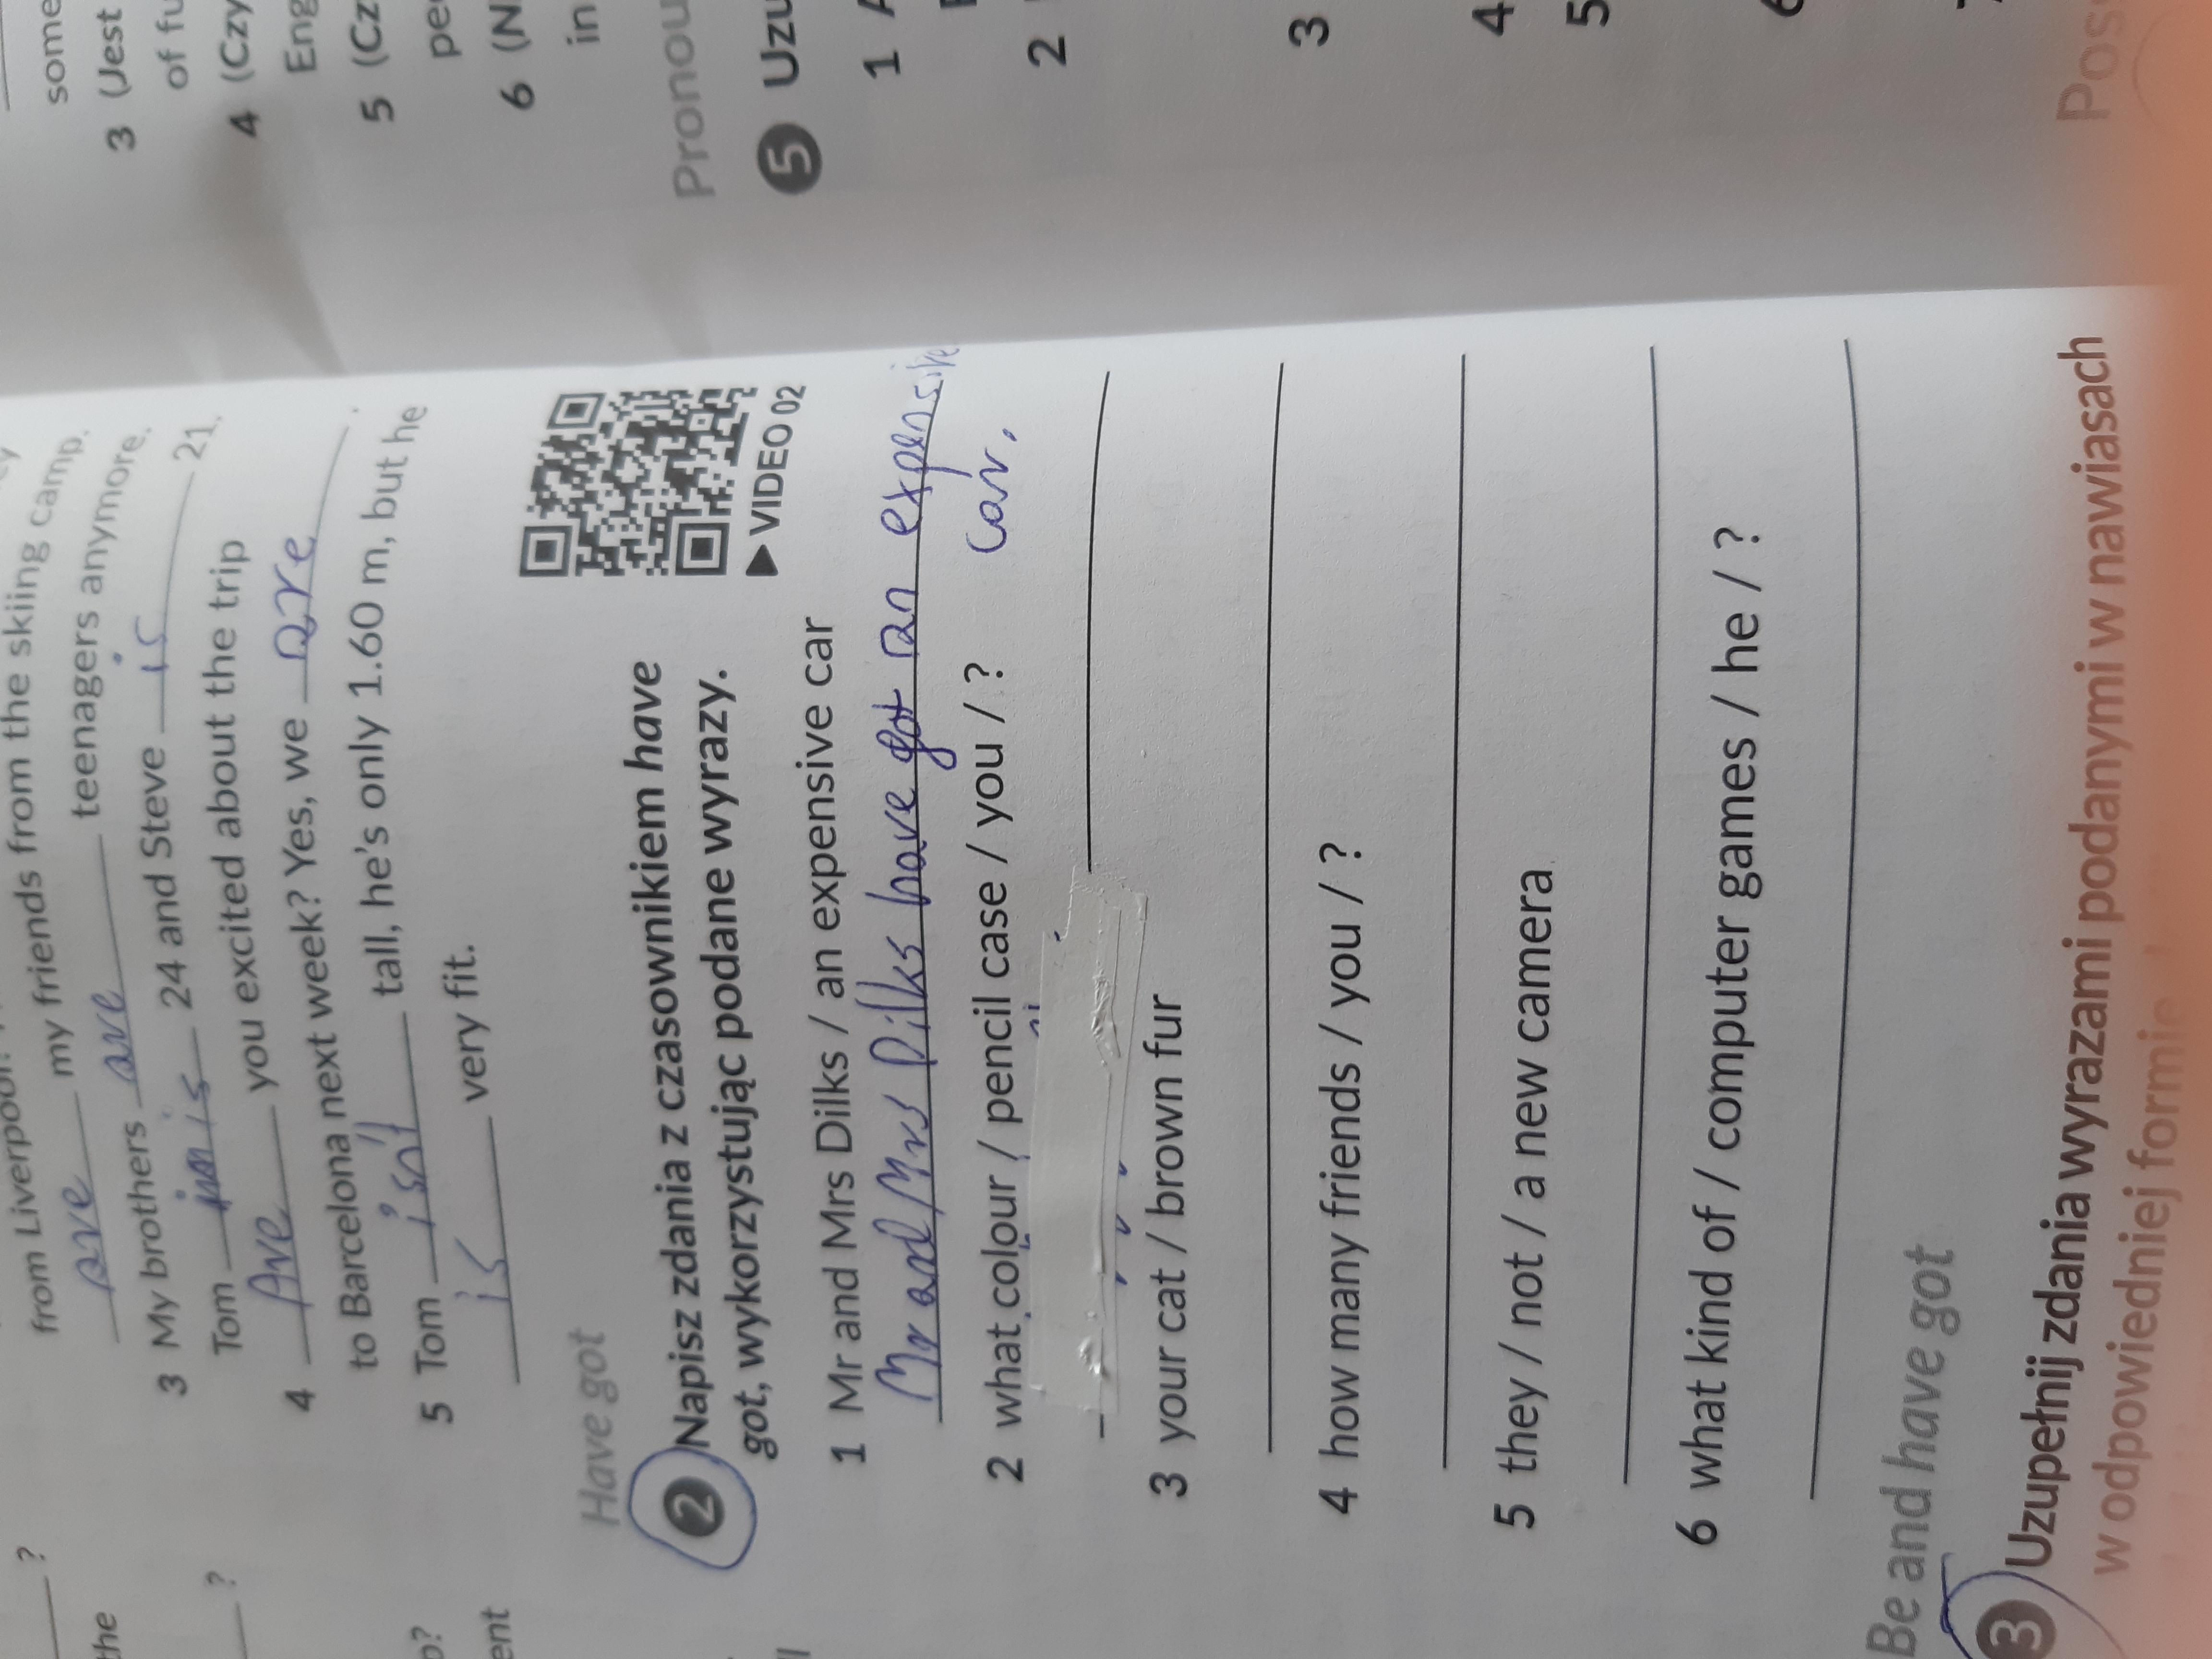 from the skiing camp.
from Liverpool
are my friends
are teenagers anymore.
3 My brothers
Tom is 24 and Steve is 21.
4 Are you excited about the trip
to Barcelona next week? Yes, we are.
5 Tom isn't tall, he's only 1.60 m, but he
is very fit.
Have got
2 Napisz zdania z czasownikiem have
got, wykorzystując podane wyrazy.
▶ VIDEO 02
1 Mr and Mrs Dilks / an expensive car
Mr and Mrs Dilks have got an expensive
car.
2 what colour / pencil case / you / ?
3 your cat / brown fur
4 how many friends / you / ?
5 they / not / a new camera
6 what kind of / computer games / he / ?
Be and have got
3 Uzupełnij zdania wyrazami podanymi w nawiasach
w odpowiedniej formie
?
the
?
?
some
3 (Jest
of
4 (Czy
5
6
in
5
1
2
3
4
5